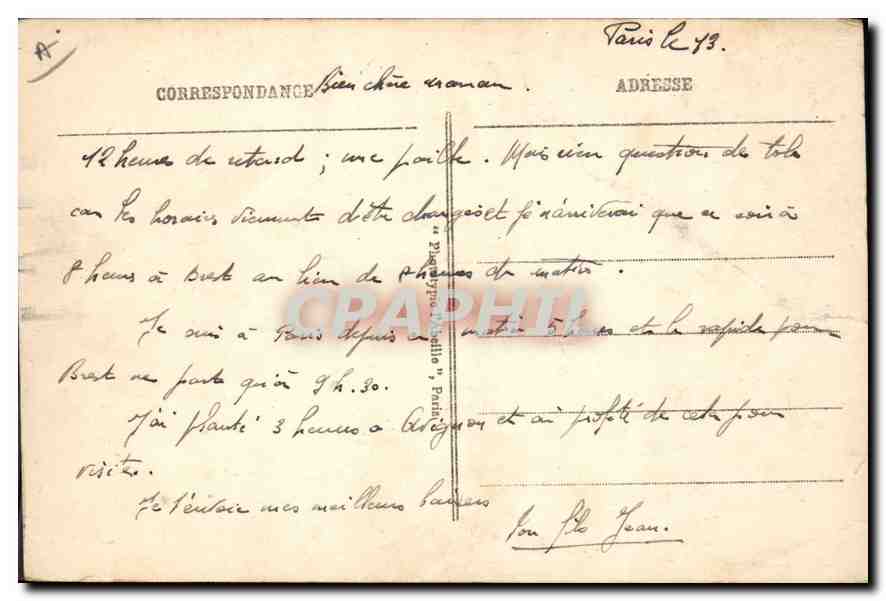 A
Paris le 13.
CORRESPONDANCE
ADRESSE
Bien chère maman.
12 heures de retard ; une paille. Mais rien question de tole
car les horaires viennent d'être changés et je n'arriverai que ce soir à
8 heures à Brest au lieu de 8 heures du matin.
Je suis à Paris depuis ce matin 5 heures et le rapide pour
Brest ne part qu'à 9h.30.
J'ai planté 3 heures à Avignon et ai profité de cela pour
visiter.
Je t'envoie mes meilleurs baisers
ton fils Jean.
"Phototypie l'Abeille", Paris
CPAPHIL